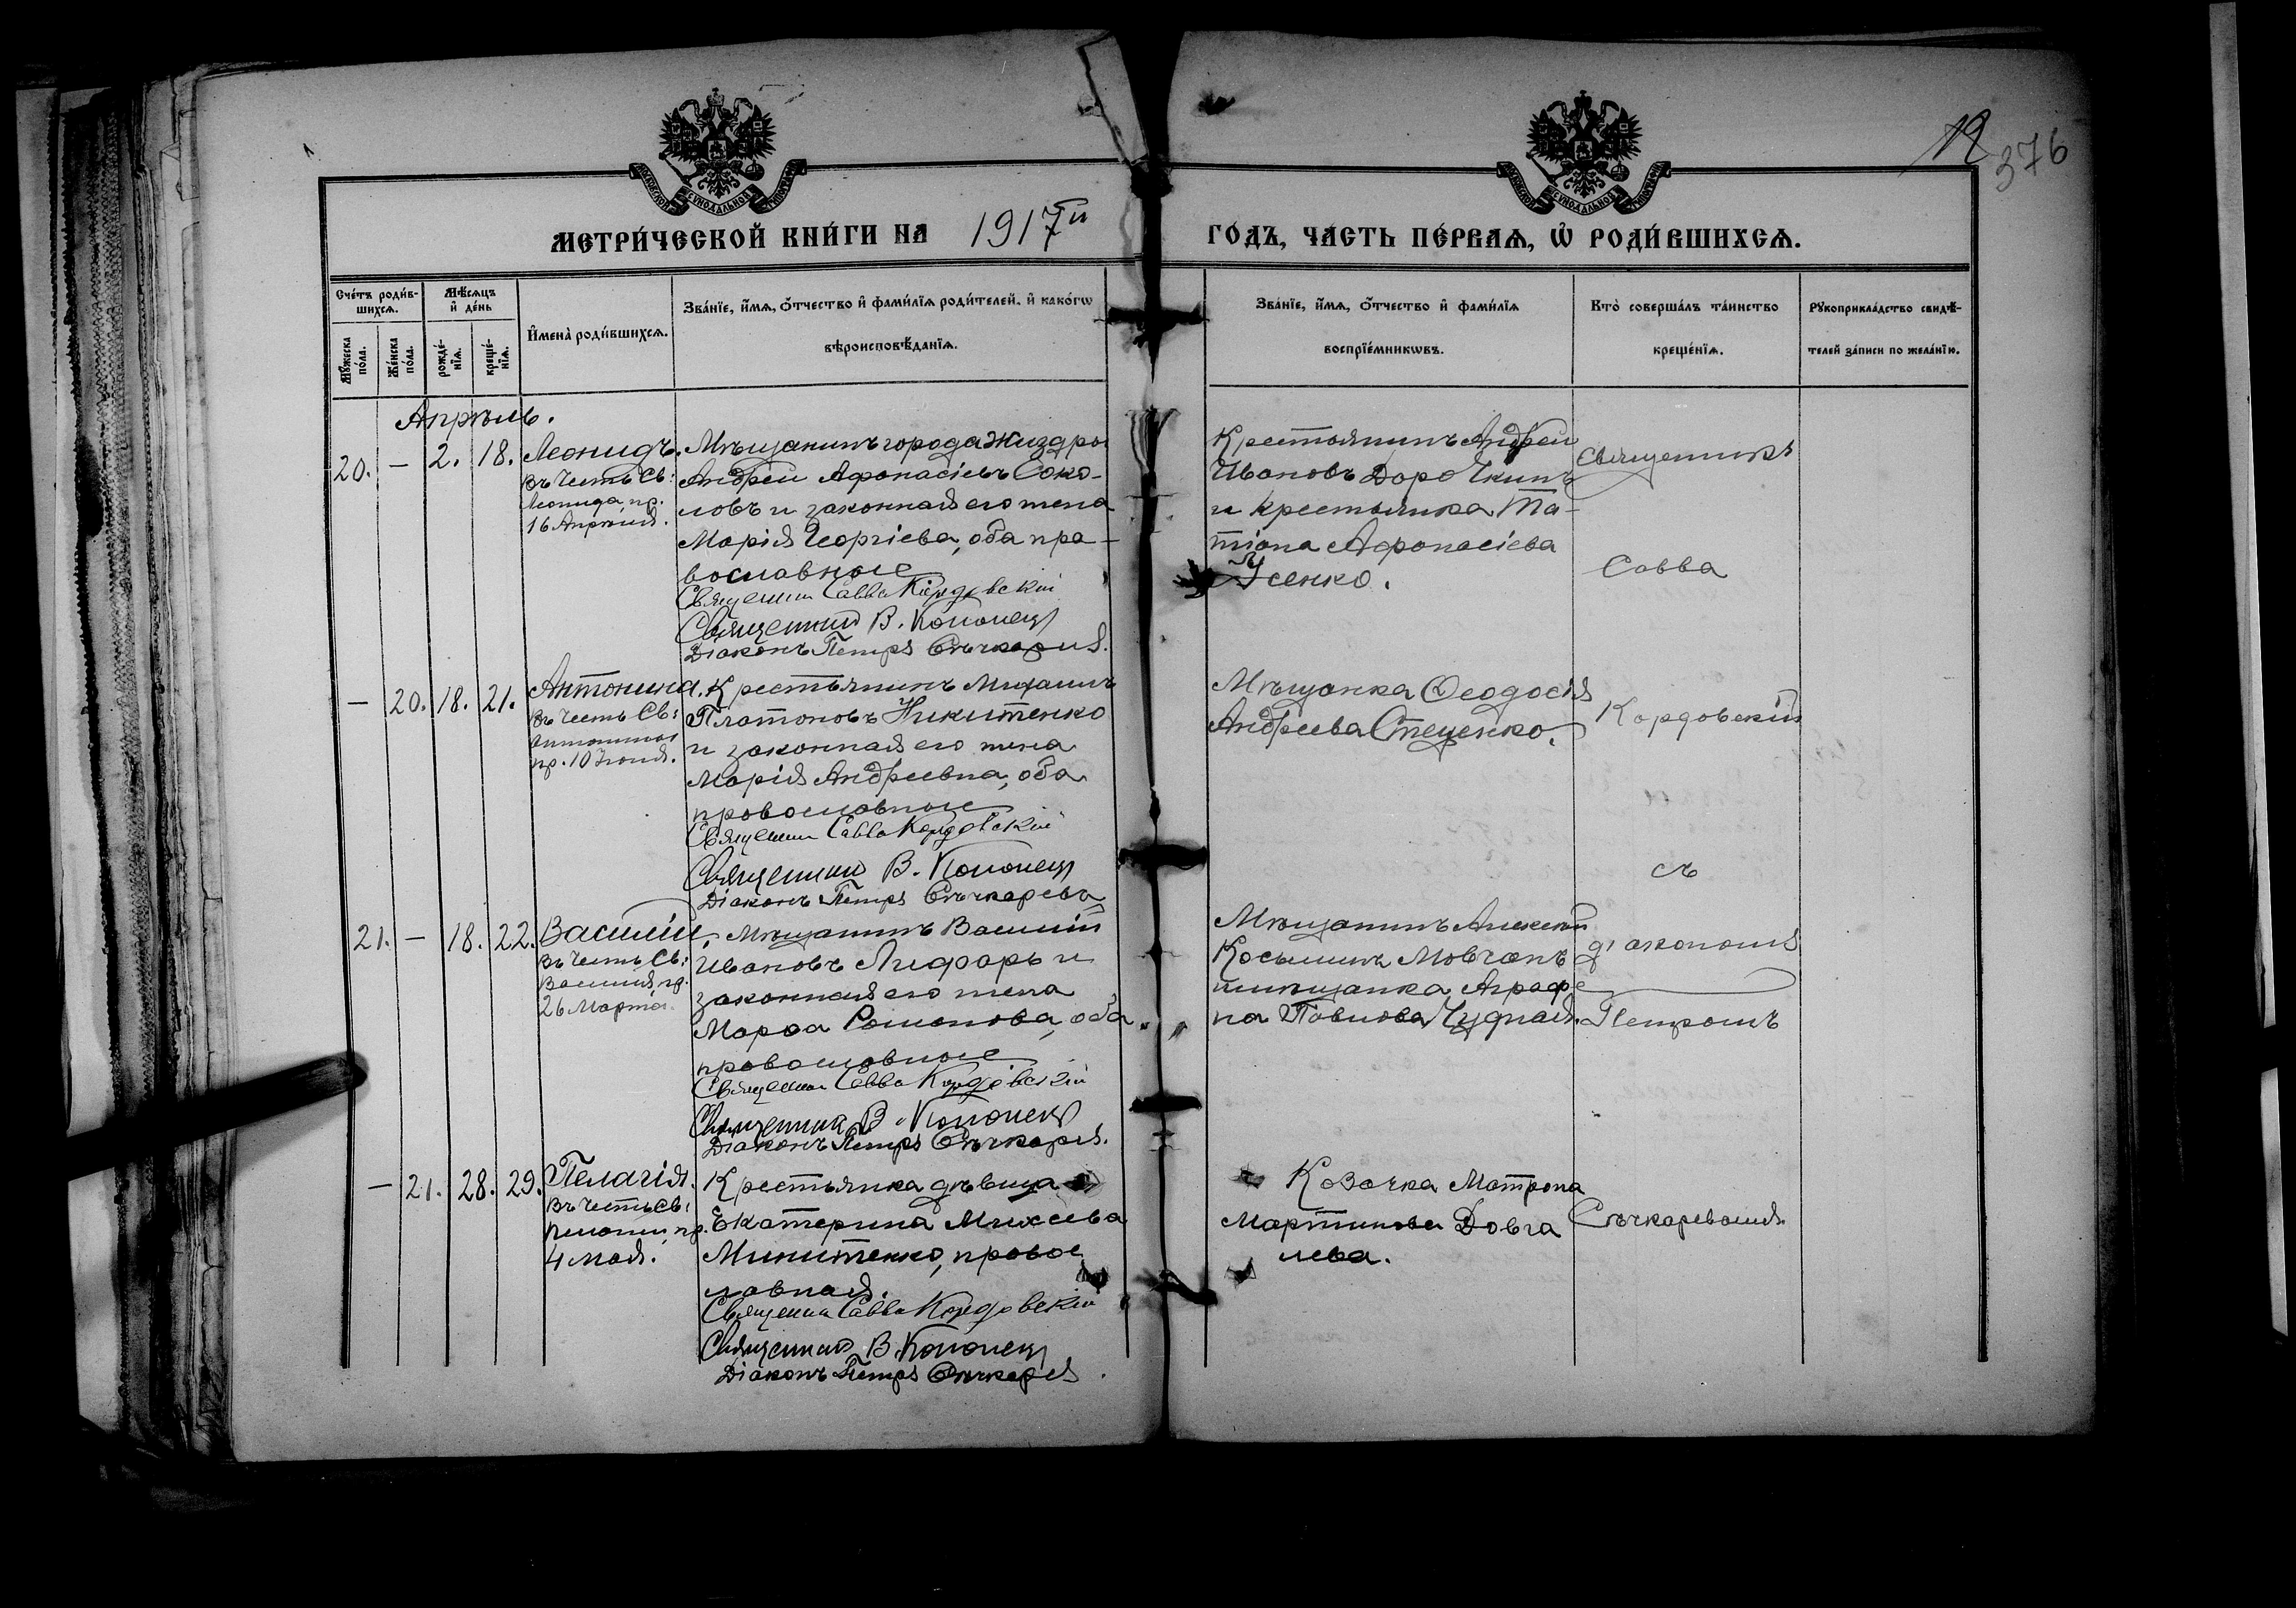 12
376
МОСКОВСКОЙ СѴНОДАЛЬНОЙ ТИПОГРАФІИ
МОСКОВСКОЙ СѴНОДАЛЬНОЙ ТИПОГРАФІИ
МЕТРИ́ЧЕСКОЙ КНИ́ГИ НА 1917й
ГО́ДЪ, ЧА́СТЬ ПЕ́РВАѦ, Ѡ҆ РОДИ́ВШИХСѦ.
Сче́тъ роди́в-
шихсѧ.
Мꙋ́жеска по́ла.
Же́нска по́ла.
Мѣ́сѧцъ
и҆ де́нь
рожде́-
нїѧ.
креще́-
нїѧ.
И҆мена̀ роди́вшихсѧ.
Зва́нїе, и҆́мѧ, ѻ҆́тчество и҆ фами́лїѧ роди́телей, и҆ како́гѡ
вѣроисповѣ́данїѧ.
Зва́нїе, и҆́мѧ, ѻ҆́тчество и҆ фами́лїѧ
воспрїе́мникѡвъ.
Кто̀ соверша́лъ та́инство
креще́нїѧ.
Рꙋкоприкла́дство свидѣ́-
телей за́писи по жела́нїю.
Апрѣль.
20. – 2. 18. Леонидъ.
въ честь Св:
Леонида, пр.
16 Апрѣля.
Мѣщанинъ города Жиздры
Андрей Афонасіевъ Соко-
ловъ и законная его жена
Марія Георгіева, оба пра-
вославные
Священник Савва Кордовскій
Священник В. Кононец
Діаконъ Петръ Сѣчкарев.
Крестьянинъ Андрей
Ивановъ Дорочкинъ
и крестьянка Та-
тіана Афонасіева
Усенко.
Священникъ
Савва
– 20. 18. 21. Антонина.
въ честь Св:
Антонины
пр. 10 Іюня.
Крестьянинъ Михаилъ
Платоновъ Никитенко
и законная его жена
Марія Андреевна, оба
православные
Священник Савва Кордовский
Священник В. Кононец
Діаконъ Петръ Сѣчкаревъ
Мѣщанка Ѳеодосія
Андреева Стеценко.
Кордовскій
съ
21. – 18. 22. Василій.
въ честь Св:
Василія, пр.
26 Марта.
Мѣщанинъ Василій
Ивановъ Лифарь и
законная его жена
Марѳа Романова, оба
православные
Священник Савва Кордовскій
Священник В. Кононец
Діаконъ Петръ Сѣчкарев.
Мѣщанинъ Алексей
Косьминъ Мовчанъ
и мѣщанка Аграфе
на Павлова Чудная.
діакономъ
Петромъ
– 21. 28. 29. Пелагія.
въ честь Св:
Пелагіи, пр.
4 мая.
Крестьянка дѣвица
Екатерина Михеева
Микитенко, правос
лавная.
Священник Савва Кордовскій
Священник В. Кононец
Діаконъ Петръ Сѣчкарев.
Козачка Матрона
Мартинова Довга
лева.
Сѣчкаревымъ.